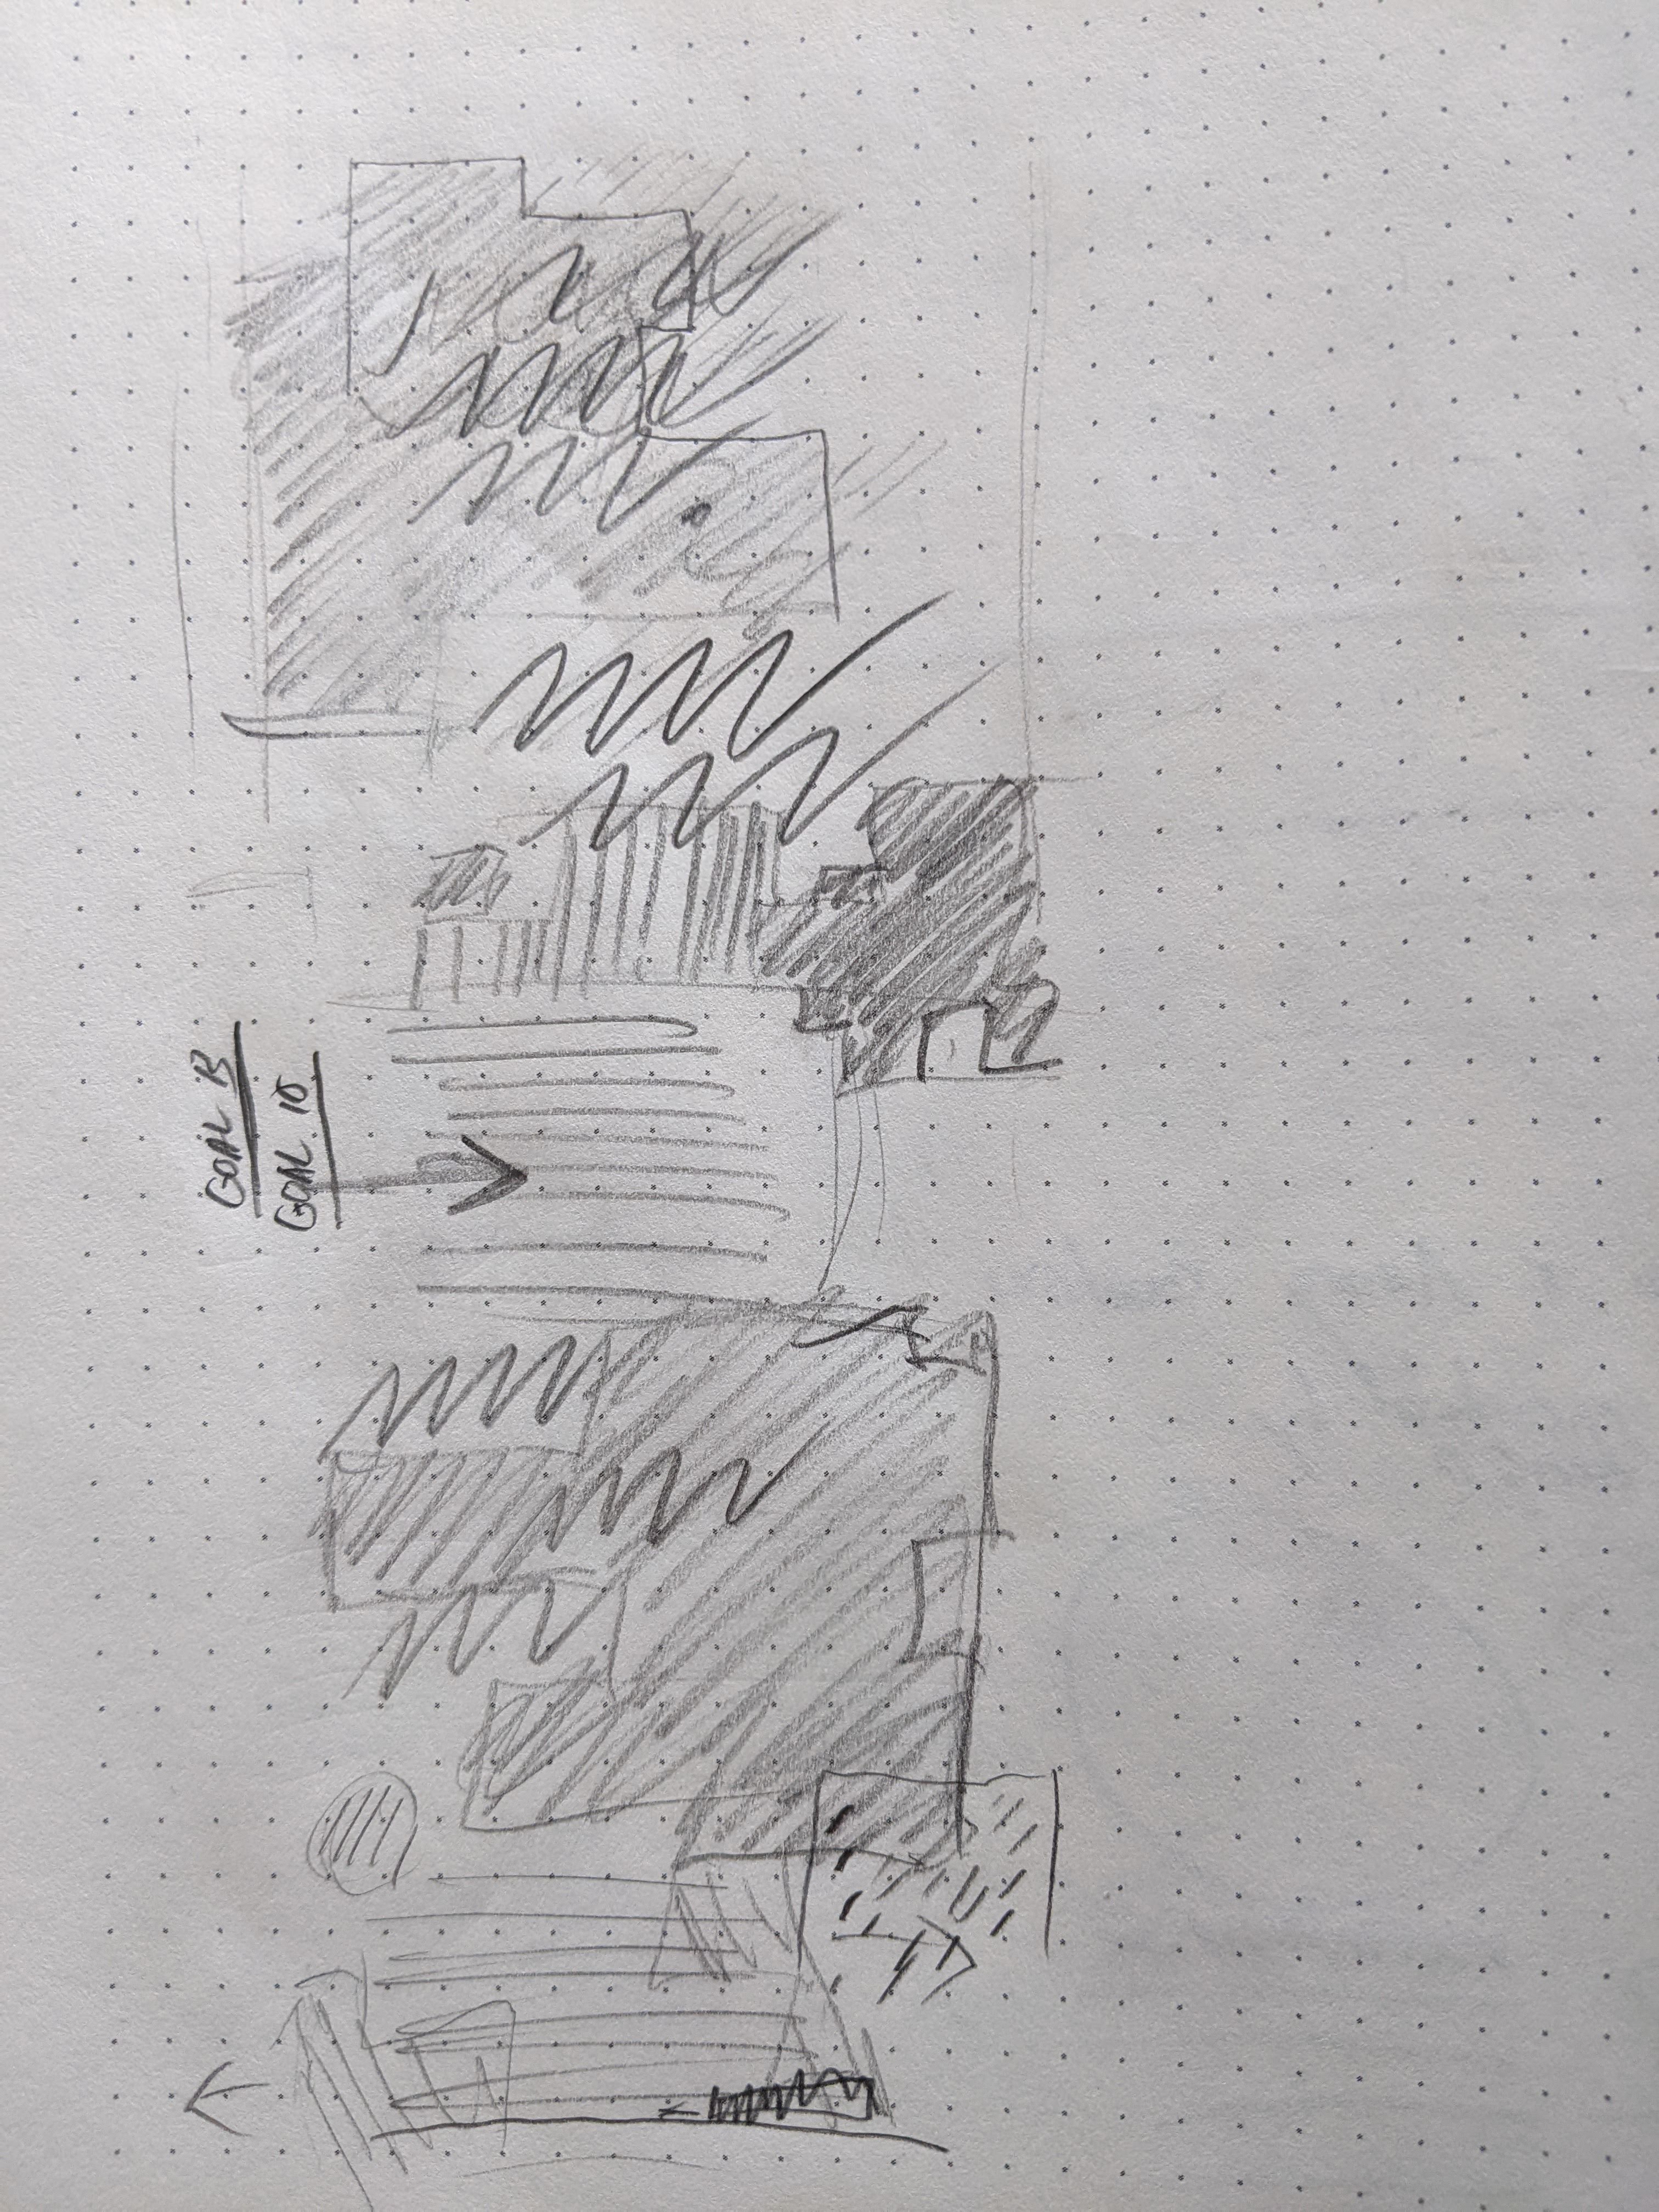 GOAL B
GOAL 10